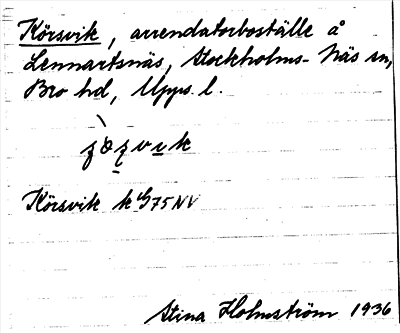 Körsvik, arrendatorboställe å
Lennartsnäs, Stockholms-Näs sn,
Bro hd, Upps. l.
Körsvik k 75 NV
Stina Holmström 1936